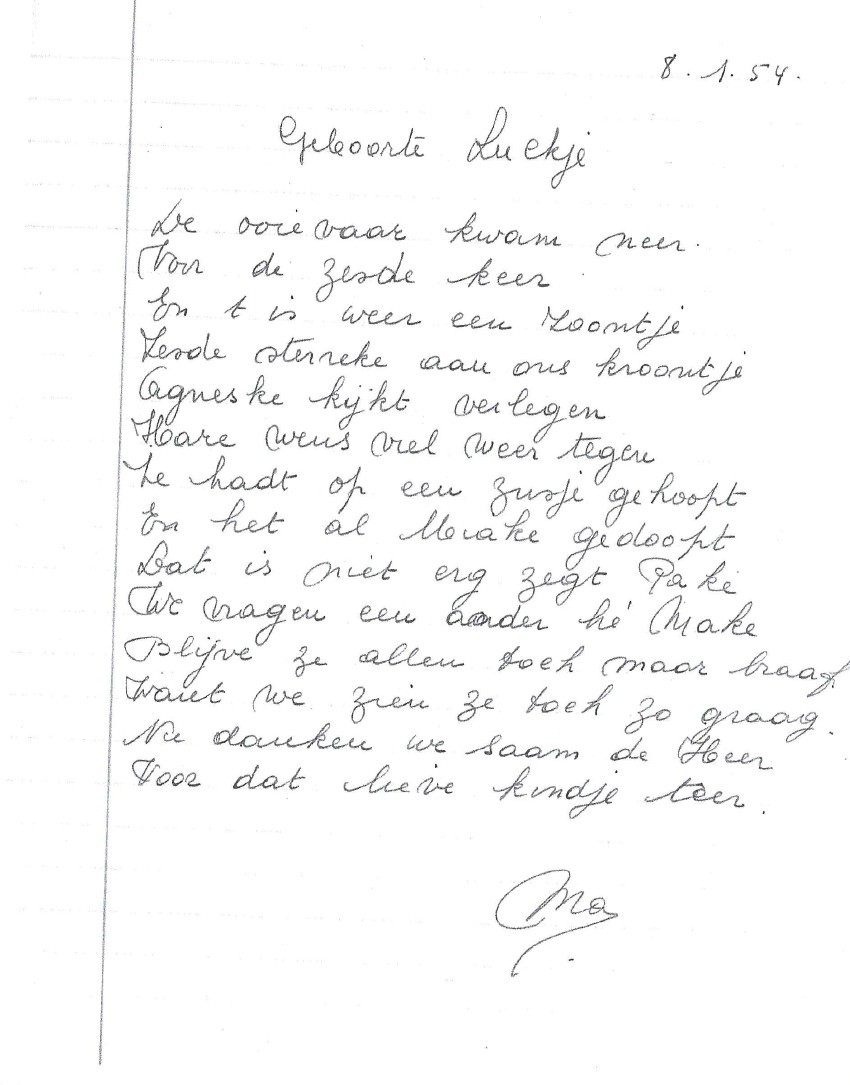 8.1.54.
Geboorte Luckje
De ooievaar kwam neer.
Voor de zesde keer
En t is weer een Zoontje
Zesde sterreke aan ons kroontje
Agneske kijkt verlegen
Hare wens viel weer tegen
Ze hadt op een zusje gehoopt
En het al gedoopt
Dat is niet erg zegt Pake
We vragen een ander hé Make
Blijve ze allen toch maar braaf
Want we zien ze toch zo graag.
Nu danken we saam de Heer
Voor dat lieve kindje teer.
Ma